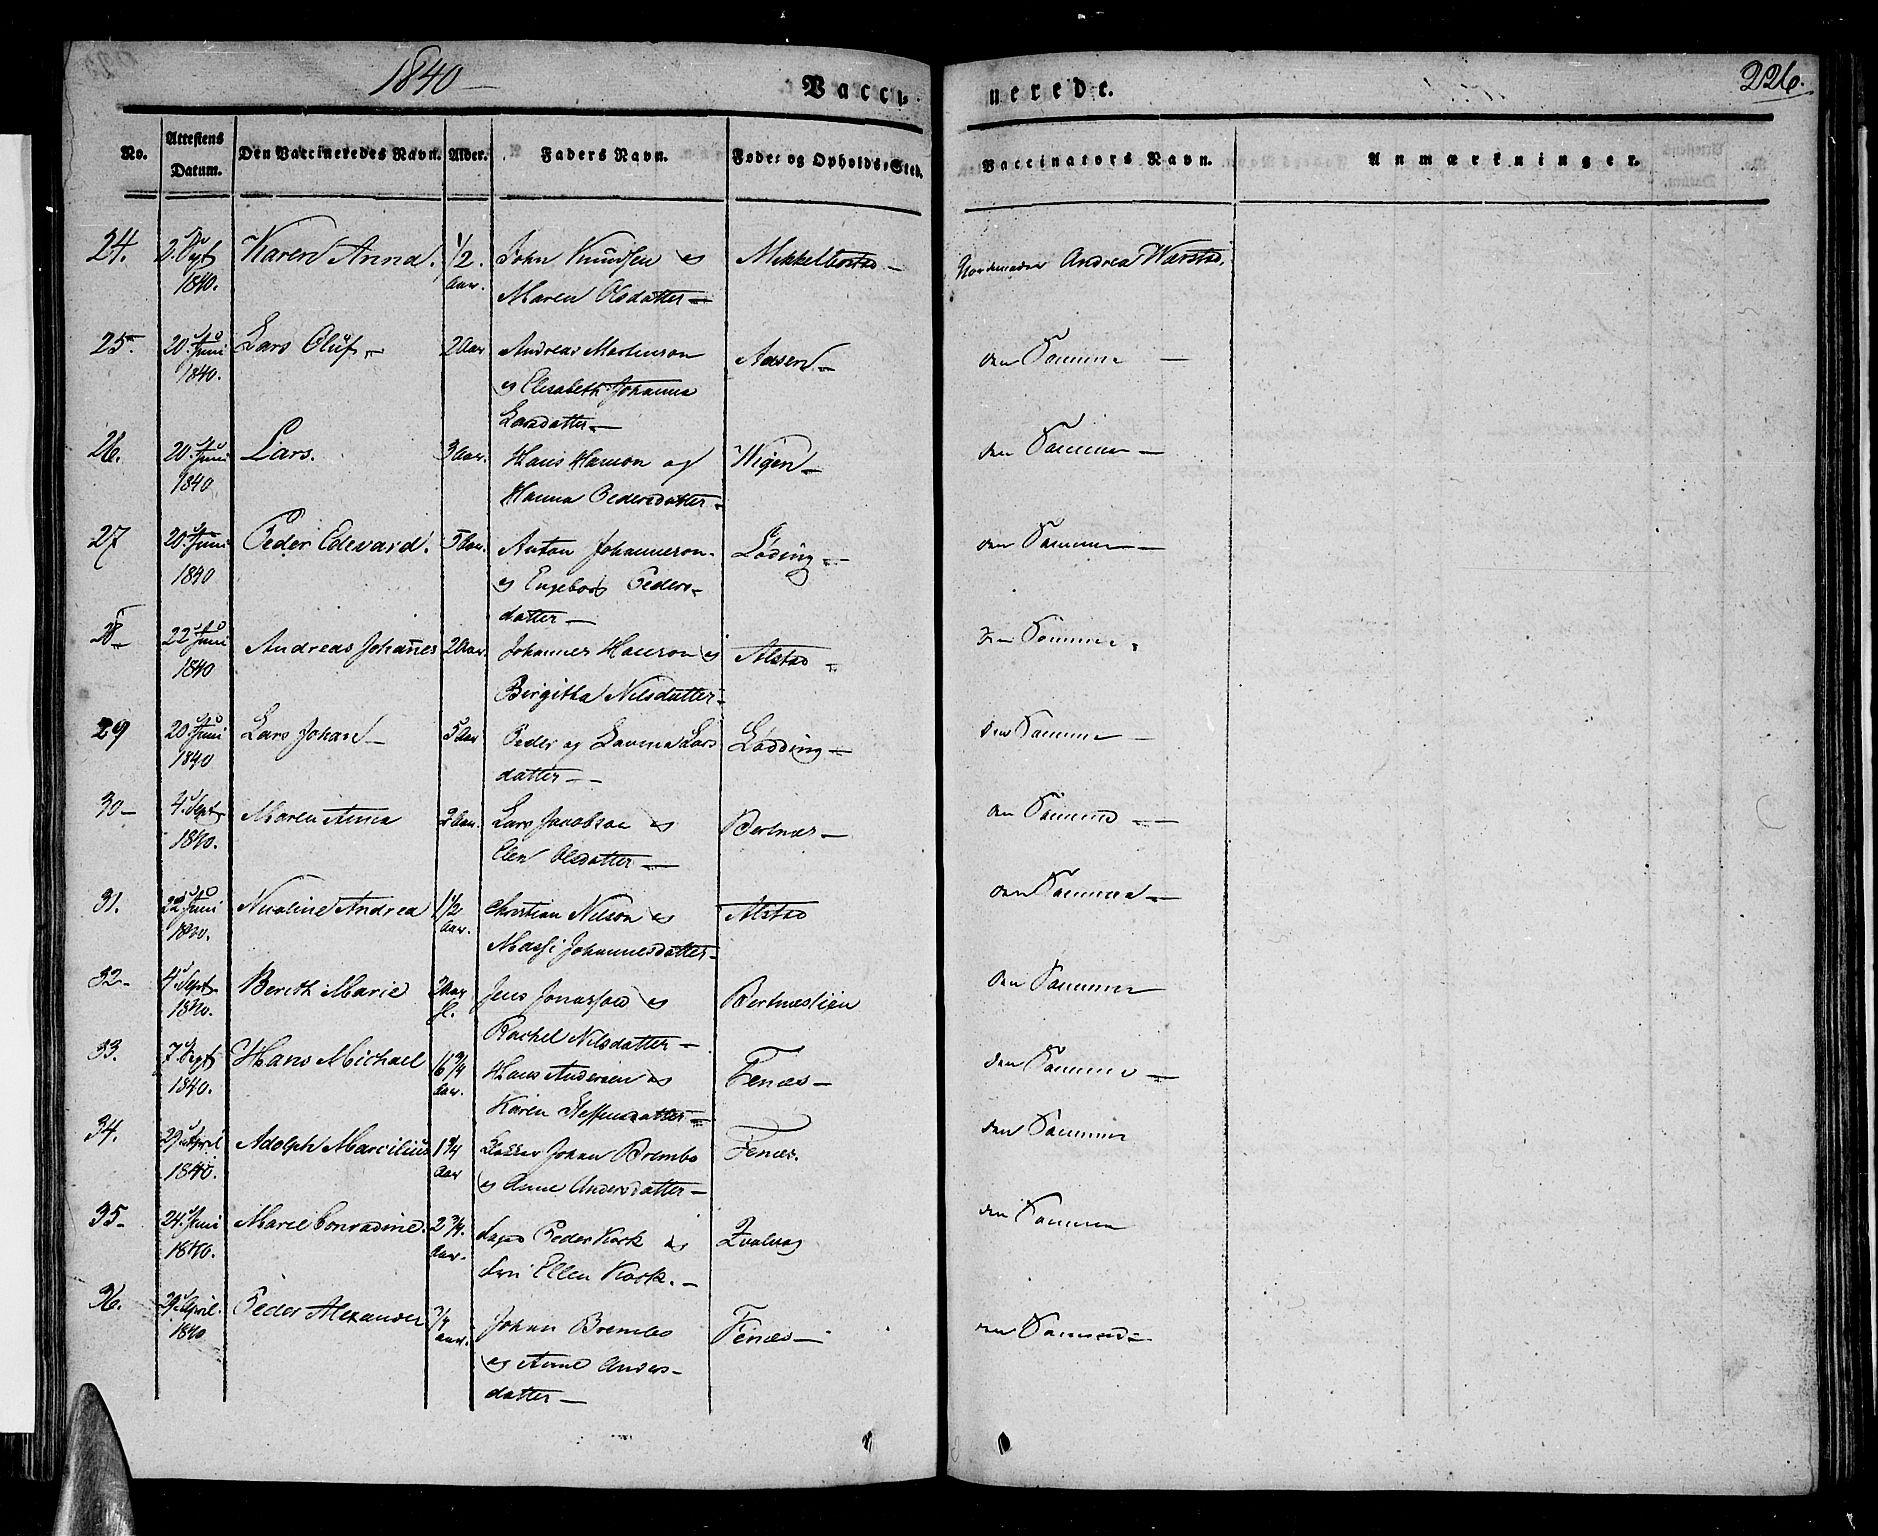 1840 —
Vacci-
nerede.
226.
No.
Attestens Datum.
Den Vaccineredes Navn.
Alder.
Faders Navn.
Føde- og Opholds-Sted.
Vaccinators Navn.
Anmærkninger.
24. 2. Sept Karen Anna. 1/2 John Knudsen og Mikkelbostad — Andrea Warstad.
1840. Aar. Maren Olsdatter —
25. 20. Juni Lars Oluf — 2 Aar Andreas Mortenson Aasen — den Samme —
1840. og Elisabeth Johanna
Larsdatter —
26. 20. Juni Lars. 3 Aar. Hans Hanson og Wigen — den Samme —
1840 Hanna Pedersdatter —
27 20. Juni Peder Edevard. 5 Aar. Anton Johanneson Løding — den Samme —
1840 og Engebor Peders-
datter —
28 — 22 Juni Andreas Johannes 2 Aar. Johannes Hanson og Alstad — Samme.
1840 Birgitha Nilsdatter —
29 20. Juni Lars Johan — 5 Aar Peder og Lars Lødding — den Samme —
1840 datter —
30 — 4. Sept Maren Anna 2 Aar. Lars Jacobson og Bertnæs — den Samme —
1840. Elen Olsdatter —
31. 22 Juni Nicoline Andrea 1 1/2 Christian Nilson og Alstad den Samme —
1840. Aar. Massi Johannesdatter —
32 — 4. Sept Berith Marie 2 Aar Jens og Bertnæslien den Samme
1840. gl. Rachel Nilsdatter —
33. 7. Sept Hans Michael 3/4 Hans Andersen og Fenæs — den Samme —
1840. Aar. Karen Steffensdatter —
34. 29. April Adolph Marcilius 1 3/4 Johan Brembo Fenæs. den Samme
1840. Aar og Anne Andersdatter —
35 — 24. Juni Marie Conradine. 2 3/4 Peder Kork og den Samme
1840. Aar. Ellen Kork. —
36. 29. April. Peder Alexander 3/4 Johan Brembo Fenæs — den Samme —
1840 aar. og Anne Anders-
datter —